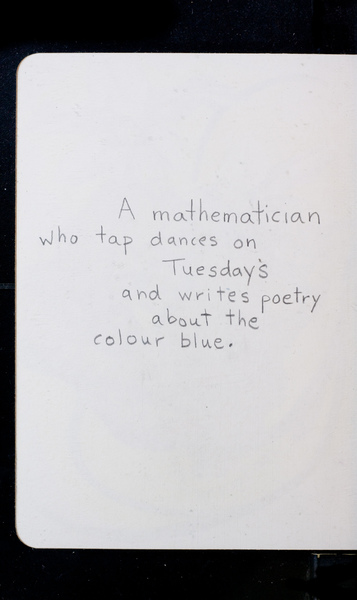 A mathematician
who tap dances on
Tuesday's
and writes poetry
about the
colour blue.